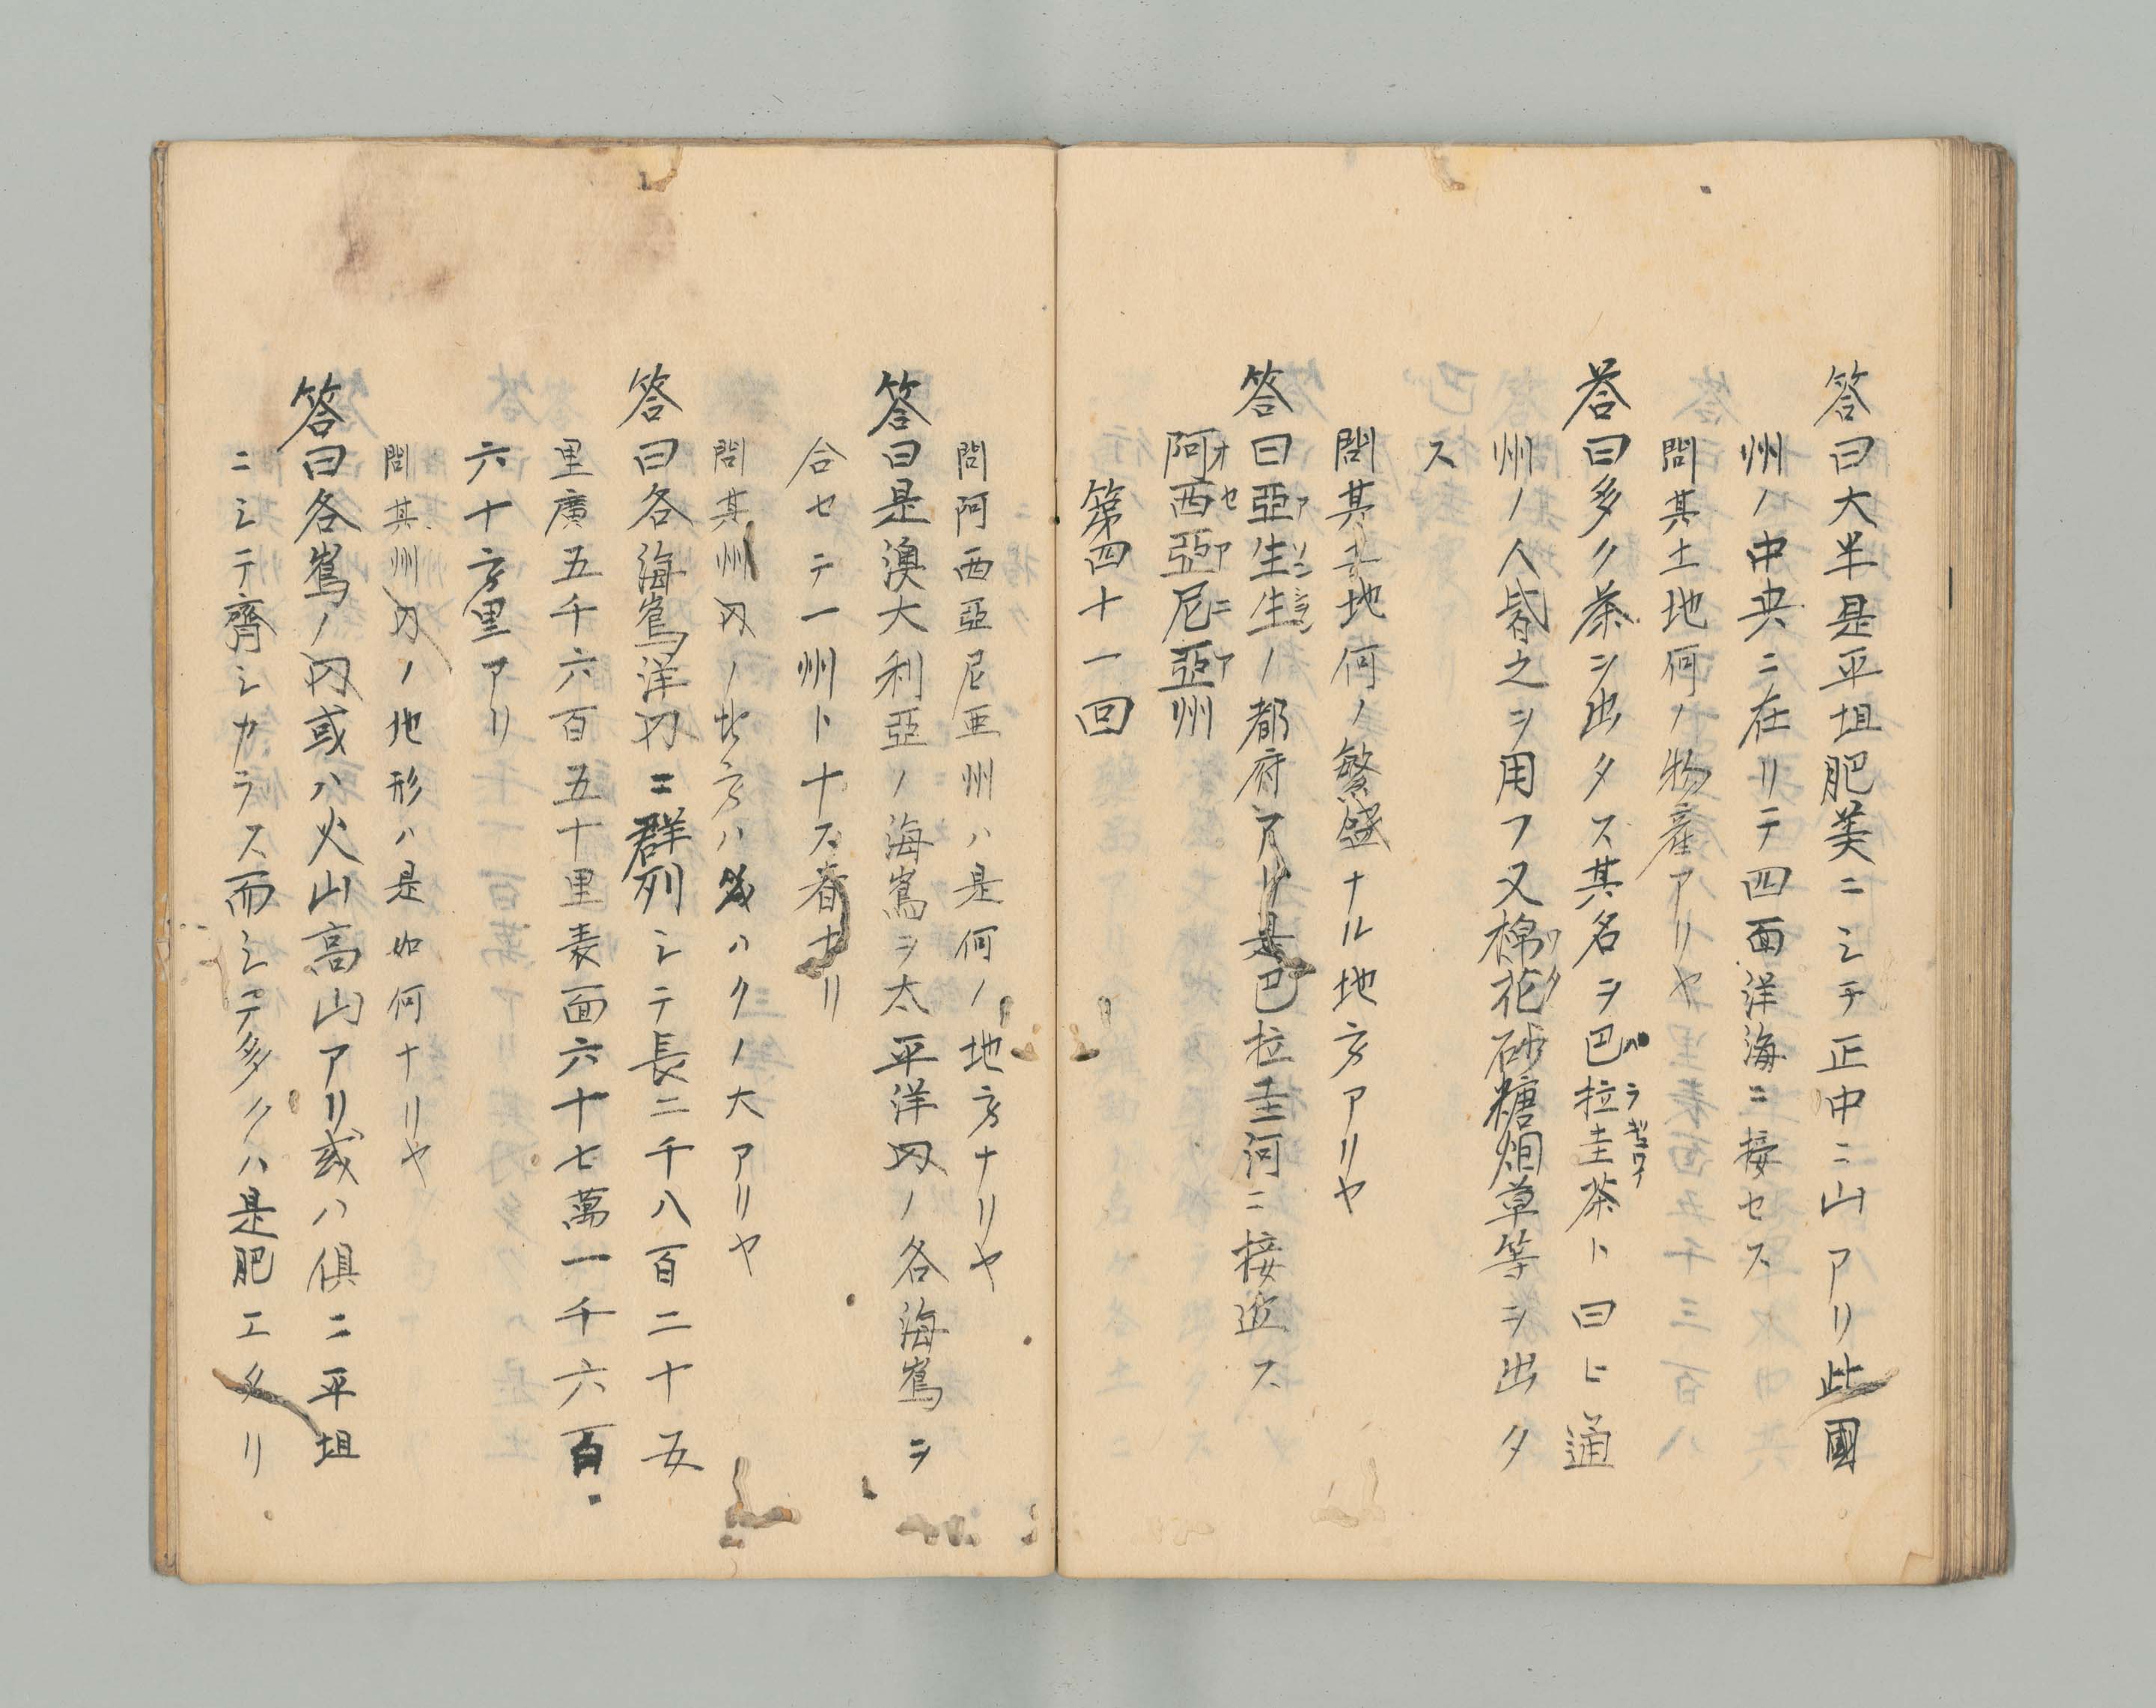 答曰大半是平坦肥美ニシテ正中ニ山アリ此國
州ノ中央ニ在リテ四面洋海ニ接セス
問其土地何ノ物產アリヤ
荅曰多ク茶ヲ出タス其名ヲ巴拉圭茶ト曰ヒ通
州ノ人皆之ヲ用フ又棉花砂糖烟草等ヲ出タ
ス
問其土地何ノ繁盛ナル地方アリヤ
答曰亞生生ノ都府アリ是巴拉圭河ニ接近ス
阿西亞尼亞州
第四十一回
問阿西亞尼亜州ハ是何ノ地方ナリヤ
答曰是澳大利亞ノ海嶌ヲ太平洋内ノ各海嶌ヲ
合セテ一州ト十ス者ナリ
問其州内ノ地方ハ幾ハクノ大アリヤ
答曰各海嶌洋内ニ群列シテ長二千八百二十五
里廣五千六百五十里表面六十七萬一千六百
六十方里アリ
問其州内ノ地形ハ是如何ナリヤ
答曰各嶌ノ内或ハ火山高山アリ或ハ倶ニ平坦
ニシテ齊シカラス而シテ多クハ是肥エタリ